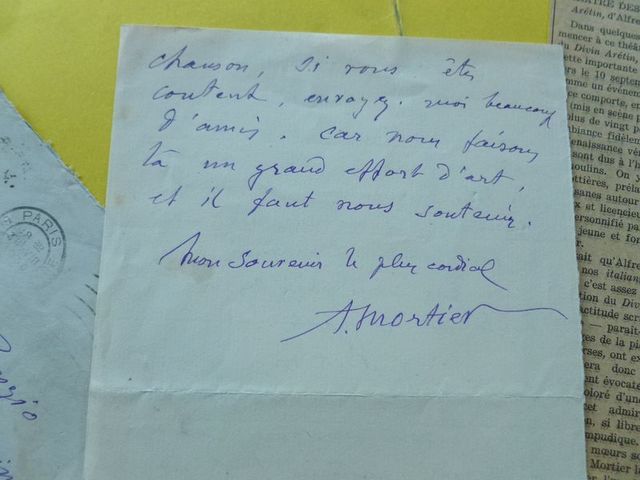 chanson, si vous êtes
content, envoyez-moi beaucoup
d'amis, car nous faisons
là un grand effort d'art,
et il faut nous soutenir.
Mon souvenir le plus cordial
A. Mortier
PARIS
ÂTRE DES
Arétin, d'Alfre
Dans quelque
mencer à ce thé
du Divin Arétin,
cette importante
ers le 10 septem
mme un événem
ce comporte, o
mis en scène p
lus de vingt p
biance fidèlem
enaissance vén
sont dus à l'ha
oulins. On y
ottières, prél
sanes autour
x et licencier
personnifié pa
jeune et for
er.
ait qu'Alfre
nos italiani
c'est assez
tion du Divi
actitude scru
— parait-
ges de la pi
erses, ont ex
era donc
nt évocate
oloré d'une
cet admir
n, si libre
mpudique.
mœurs so
Mortier le